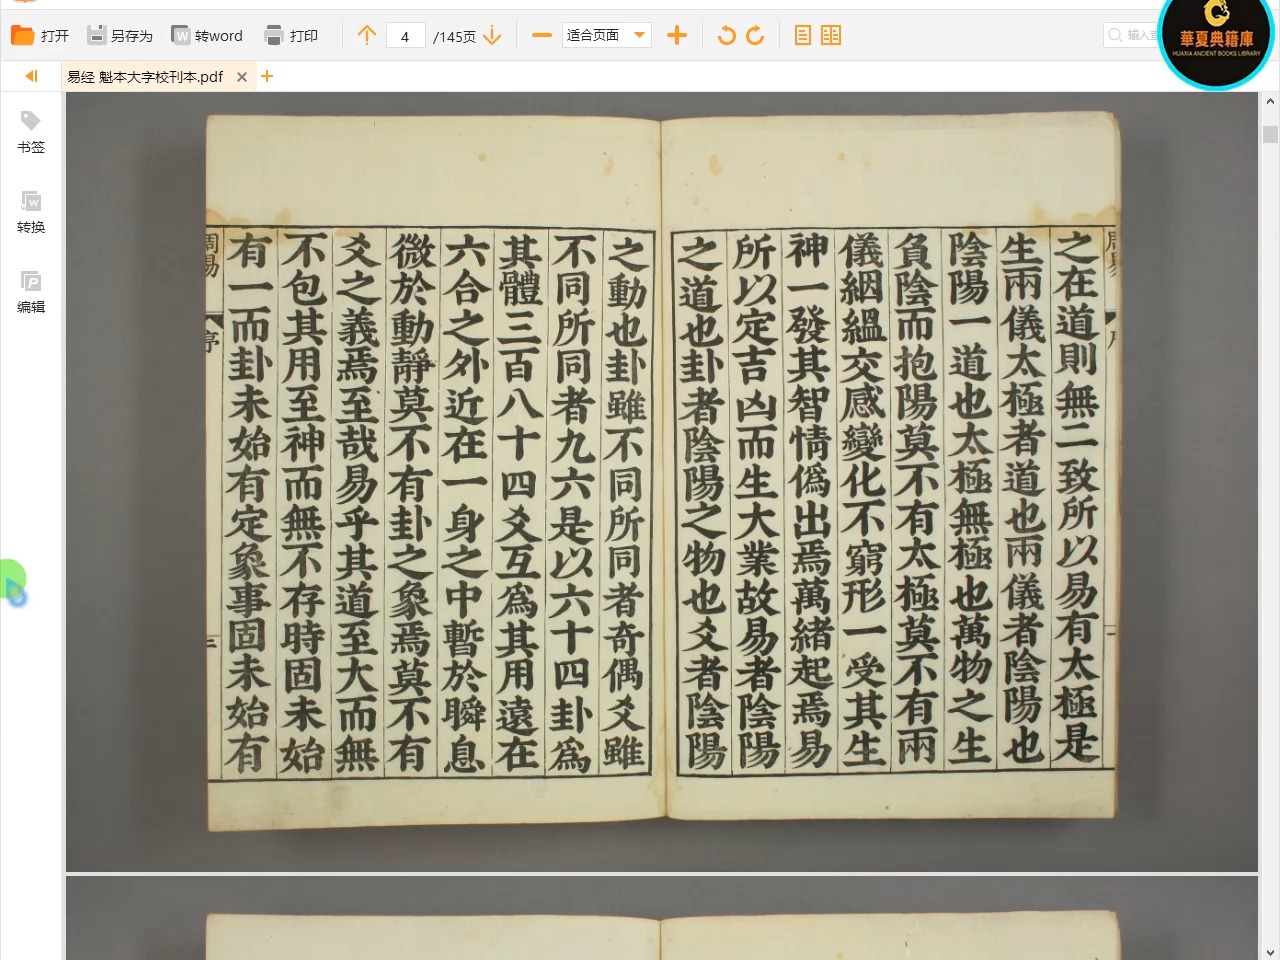 打开
另存为
转word
打印
4
/145页
适合页面
華夏典籍庫
HUAXIA ANCIENT BOOKS LIBRARY
易经 魁本大字校刊本.pdf
书签
转换
编辑
之在道則無二致所以易有太極是
生兩儀太極者道也兩儀者陰陽也
陰陽一道也太極無極也萬物之生
負陰而抱陽莫不有太極莫不有兩
儀絪縕交感變化不窮形一受其生
神一發其智情僞出焉萬緒起焉易
所以定吉凶而生大業故易者陰陽
之道也卦者陰陽之物也爻者陰陽
之動也卦雖不同所同者奇偶爻雖
不同所同者九六是以六十四卦爲
其體三百八十四爻互爲其用遠在
六合之外近在一身之中暫於瞬息
微於動靜莫不有卦之象焉莫不有
爻之義焉至哉易乎其道至大而無
不包其用至神而無不存時固未始
有一而卦未始有定象事固未始有
周易
序